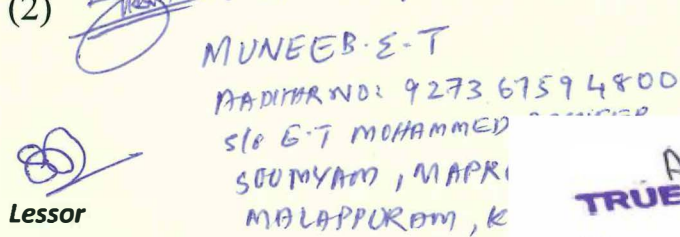 (2)
MUNEEB.E-T
AADHAR NO: 9273 6759 4800
S/o E.T MOHAMMED
SOUMYAM, MAPR
MALAPPURAM, K
Lessor
A
TRUE